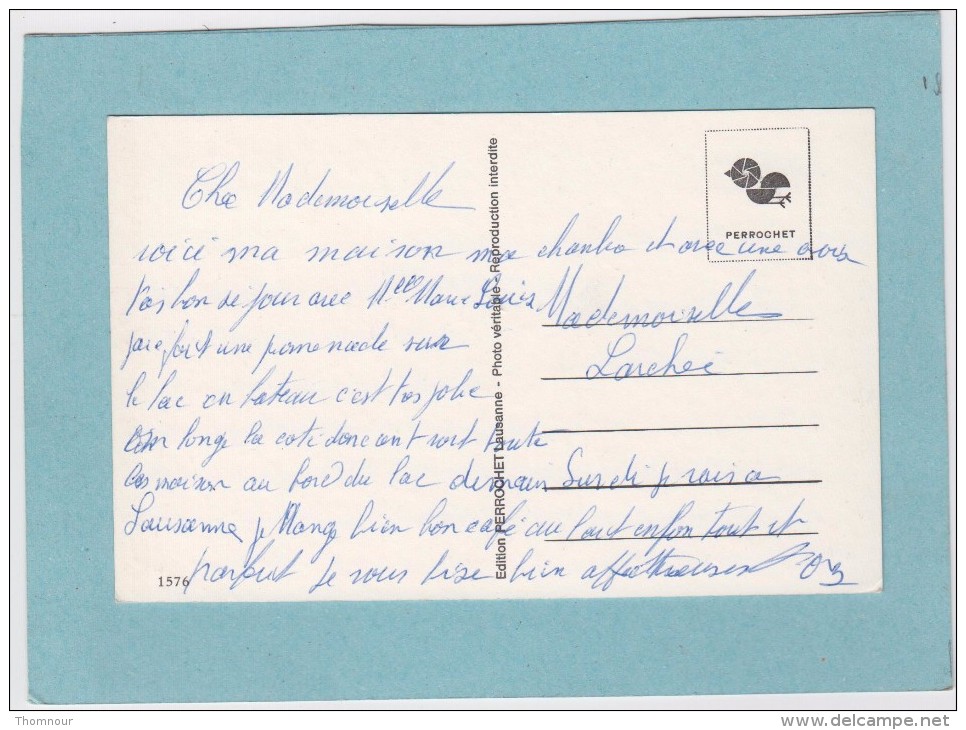 Chee Mademoiselle
voici ma maison ma chambre et avec une croix
bon séjour avec Melle Marie Louise
fait une promenade sur
le lac en bateau c'est très jolie
on longe la coté donc ont voit toute
les maison au bord du lac demain je vais a
Lausanne je Mange bien bon café au lait enfin tout et
parfait je vous bise bien
Mademoiselle
Larcheé
PERROCHET
Edition PERROCHET Lausanne - Photo véritable - Reproduction interdite
1576
Thomnour
www.delcampe.net